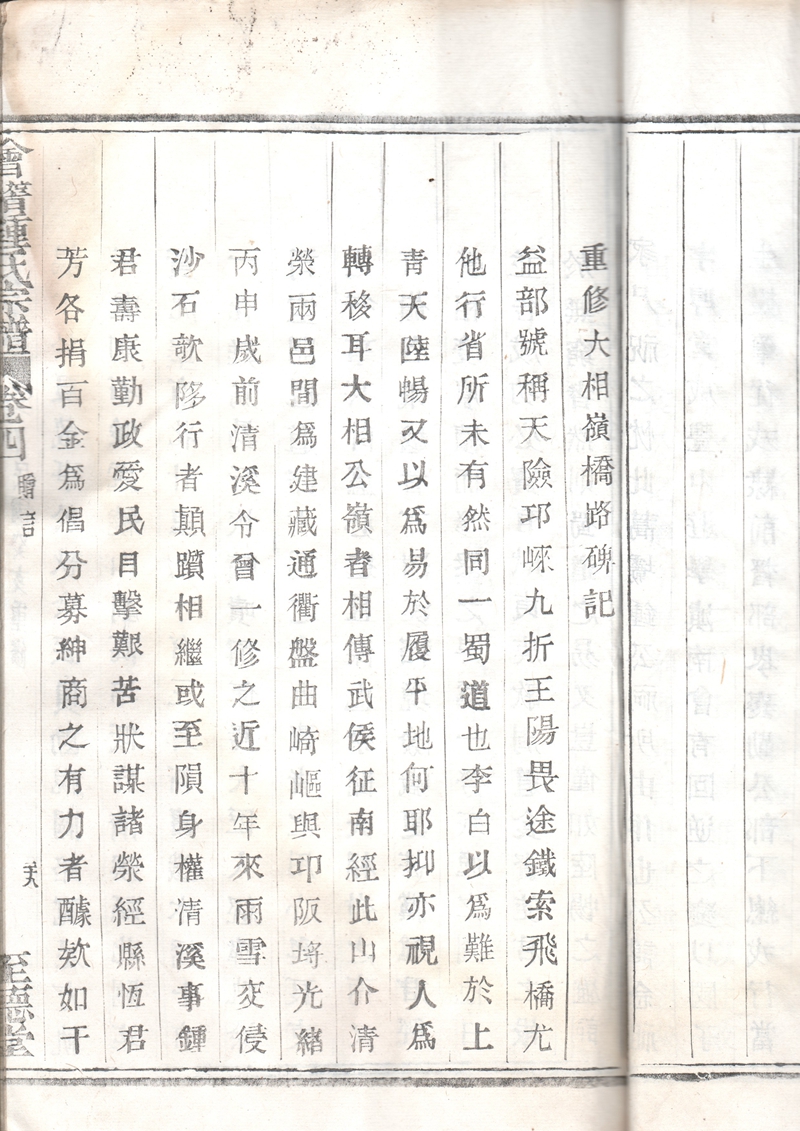 重修大相嶺橋路碑記
益部號稱天險邛崍九折王陽畏途鐵索飛橋尤
他行省所未有然同一蜀道也李白以爲難於上
青天陸暢又以爲易於履平地何耶抑亦視人爲
轉移耳大相公嶺者相傳武侯征南經此山介清
榮兩邑間爲建藏通衢盤曲崎嶇與邛阪埓光緒
丙申歲前清溪令曾一修之近十年來雨雪交侵
沙石欹陊行者顛躓相繼或至隕身權清溪事鍾
君壽康勤政愛民目擊艱苦狀謀諸榮經縣恆君
芳各捐百金爲倡分募紳商之有力者醵欵如干
會稽鍾氏宗譜 卷之四 贈言 至德堂